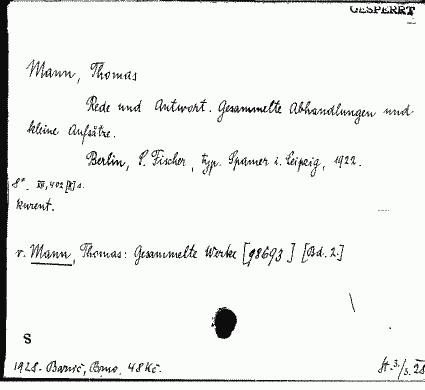 GESPERRT
Mann, Thomas
Rede und Antwort. Gesammelte Abhandlungen und
kleine Aufsätze.
Berlin, S. Fischer, typ. Spamer i. Leipzig, 1922.
8°. XII, 402 [2] s.
kurent.
v. Mann, Thomas: Gesammelte Werke [98693] [Bd. 2.]
S
1928. Barvič, Brno. 48 Kč.
St. 3/3. 28